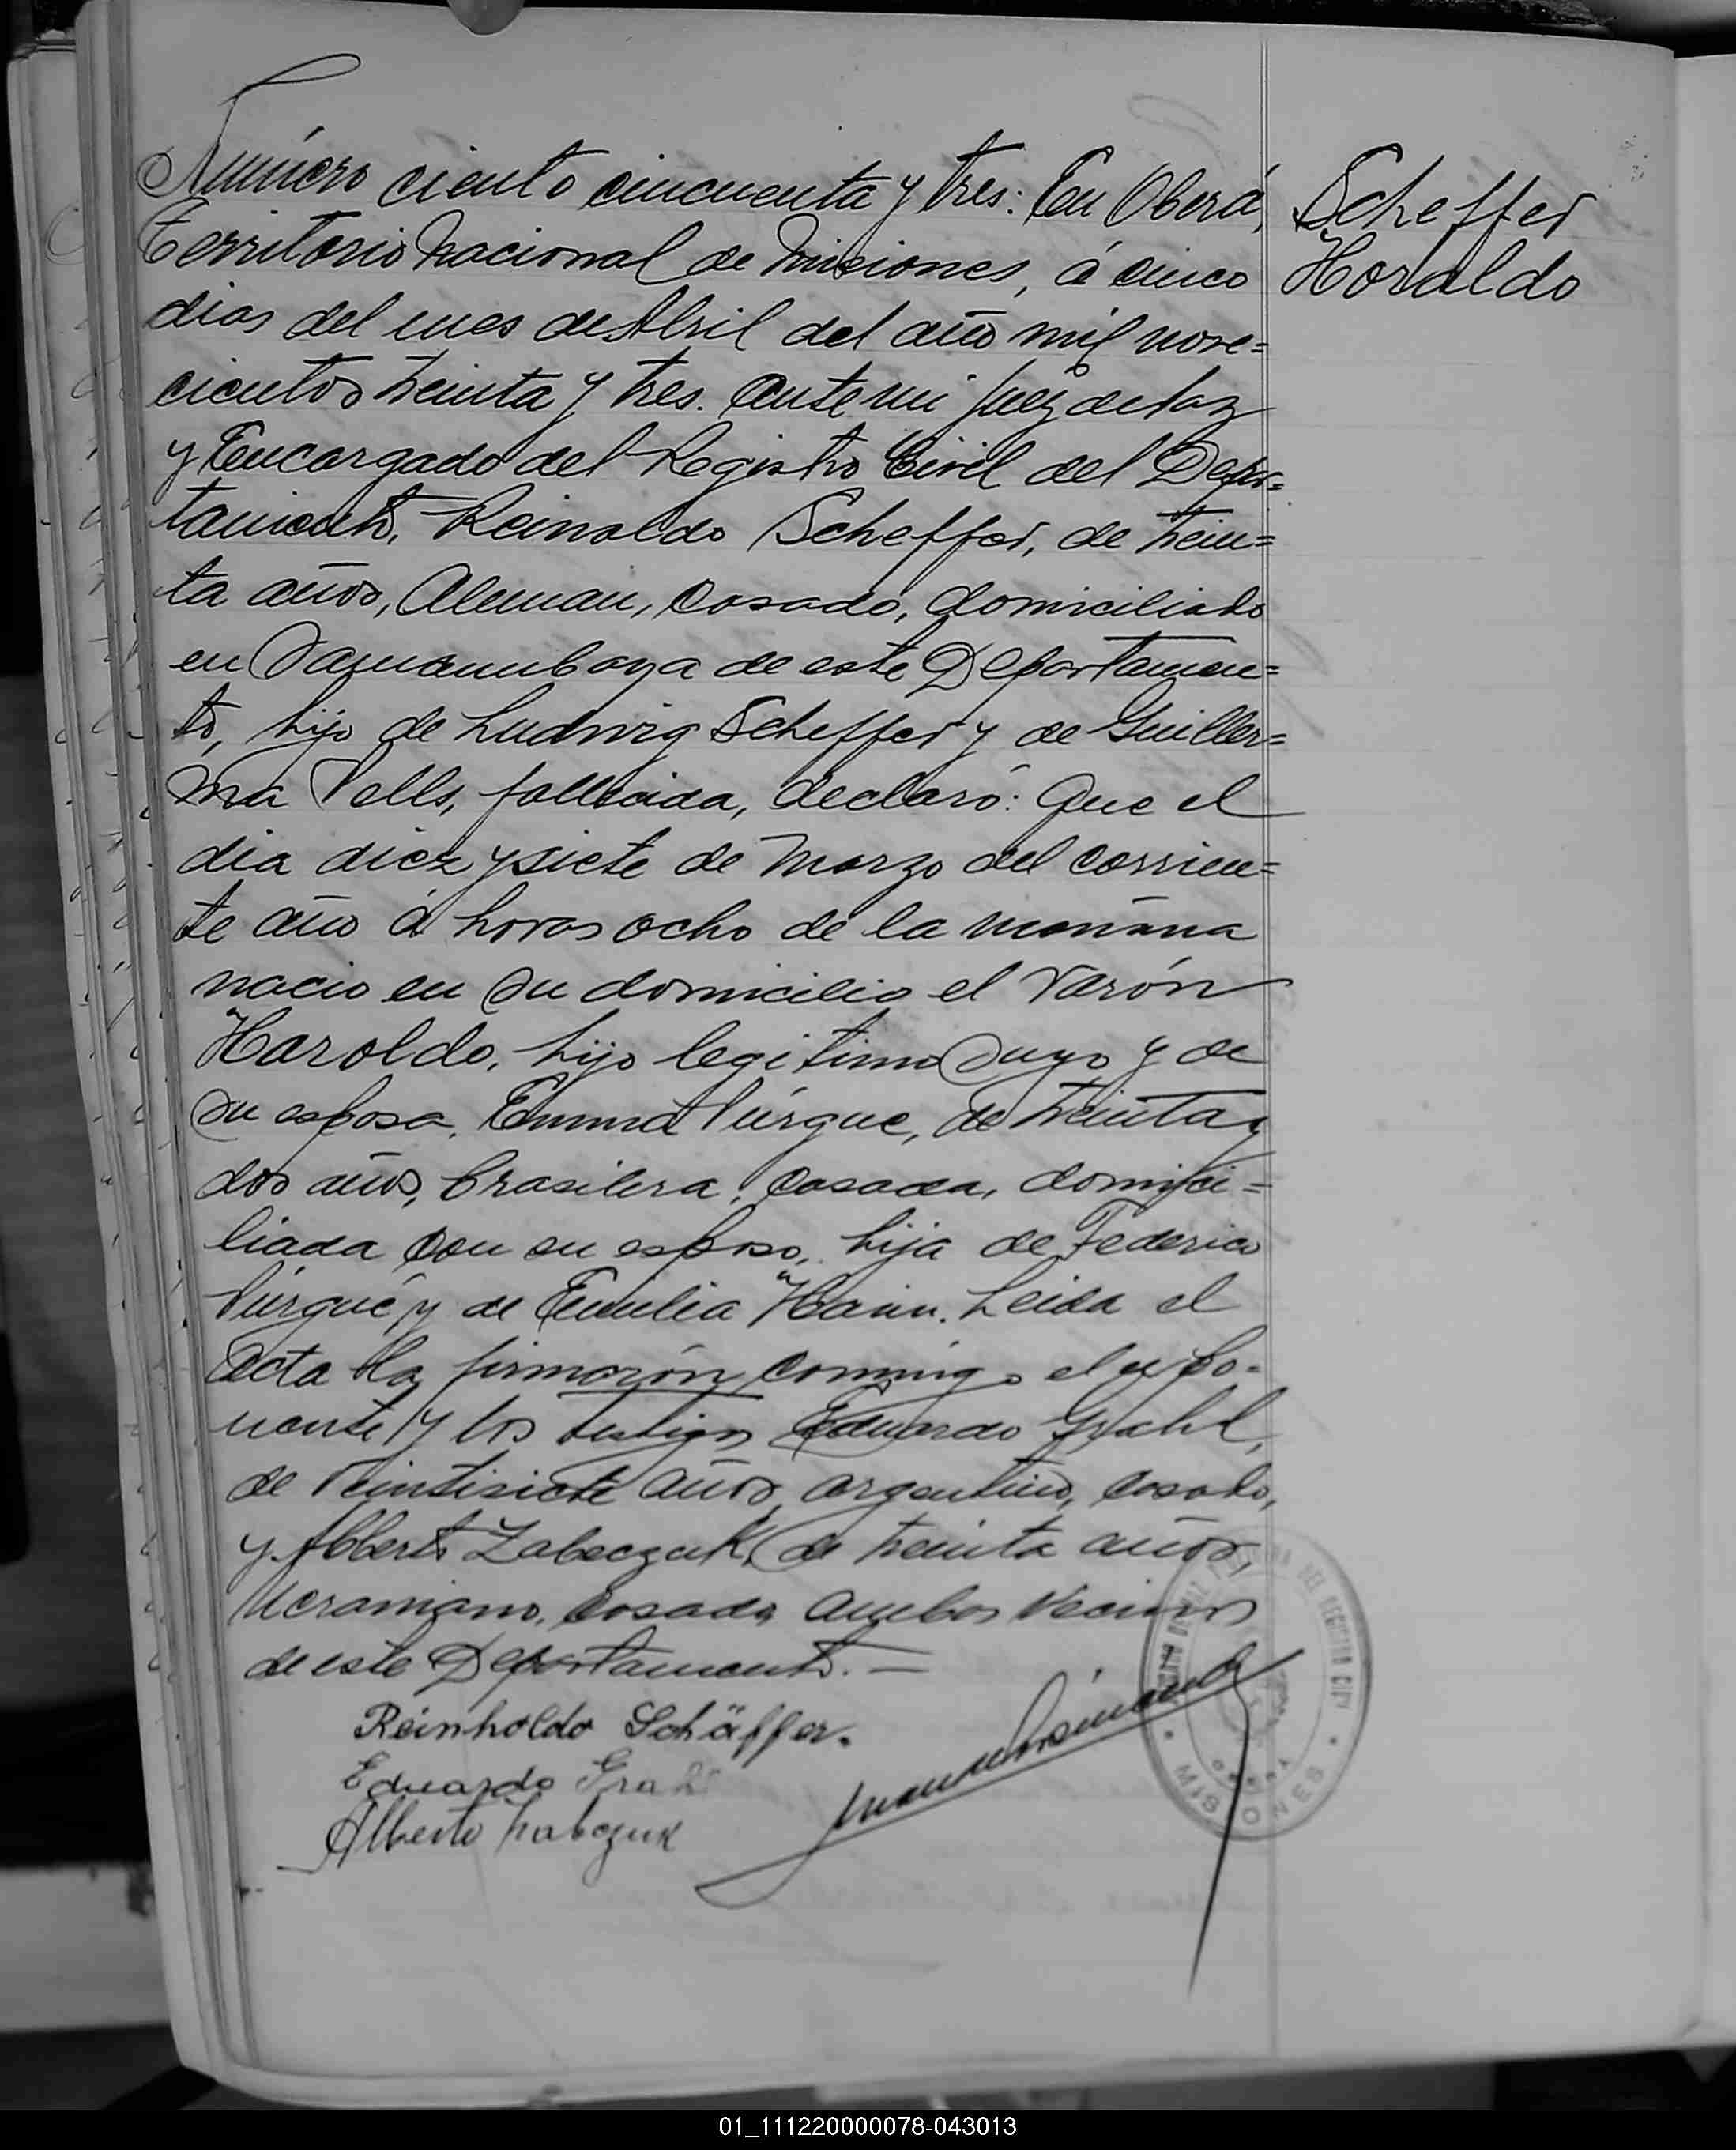 Número ciento cincuenta y tres: En Oberá,
Territorio Nacional de Misiones, á cinco
dias del mes de Abril del año mil nove=
cientos treinta y tres. Ante mi Juez de Paz
y Encargado del Registro Civil del Depar=
tamento, Reinaldo Scheffer, de trein=
ta años, Aleman, casado, domiciliado
en de este Departamen=
to, hijo de Ludwig Scheffer y de Guiller=
ma Vells, fallecida, declaró: Que el
dia diez y siete de Marzo del corrien=
te año á horas ocho de la mañana
nacio en su domicilio el varón
Haroldo, hijo legitimo suyo y de
su esposa, Emma Virgue, de treinta y
dos años, brasilera, casada, domici=
liada con su esposo, hija de Federico
Virgue y de Emilia Hann. Leida el
acta la firmarón conmigo el expo-
nente y los testigos Eduardo Grahl,
de veintisiete años argentino, casado,
y Alberto Zabeczuk, de treinta años,
Ucraniano, casado, ambos vecinos
de este Departamento. —
Reinholdo Schäffer.
Eduardo
Alberto
Scheffer
Haroldo
DEL REGISTRO CIVIL
MISIONES
OBERA
01_111220000078-043013